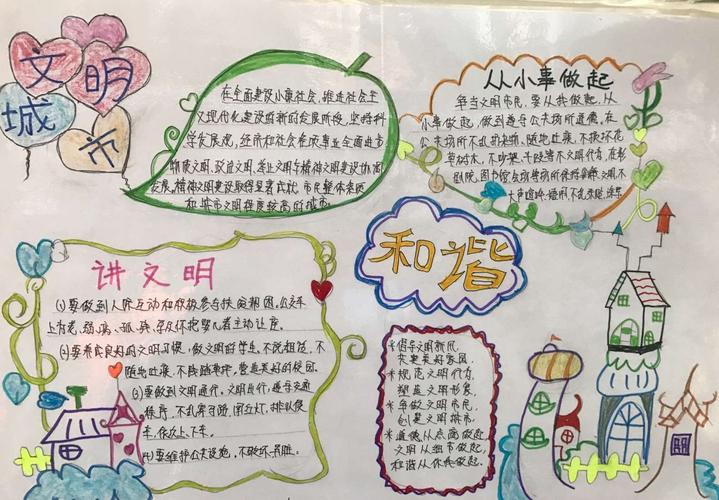 文明
城市
在全面建设小康社会，推进社会主
义现代化建设的新的发展阶段，坚持科
学发展观，经济和社会各项事业全面进步
物质文明、政治文明、
精神文明建设协调
发展，精神文明建设取得显著成就，市民整体素质
和城市文明程度较高的城市。
从小事做起
争当文明市民，要从我做起，从
小事做起，做到遵守公共场所道德，在
公共场所不乱扔杂物、随地吐痰，不损坏花
草树木，不吵架、
等不文明行为，在影
剧院、图书馆
大声喧哗
讲文明
(1)要做到人际互动和积极参与扶贫
公交车
上为老、弱、病、残、孕
主动让座。
(2)要养成良好的文明习惯，做文明的学生，不说粗话、不
随地吐痰、不
营造美好的校园。
(3)要做到文明通行，文明出行，遵守交通
秩序，不乱穿马路，闯红灯，排队候
车，依次上、下车。
(4)要维护公共设施，不破坏
和谐
★倡导文明新风，
共建美好家园。
★规范文明行为，
塑造文明形象。
★争做文明市民，
创建文明城市。
★道德从点滴做起，
文明从细节做起，
和谐从你我做起。